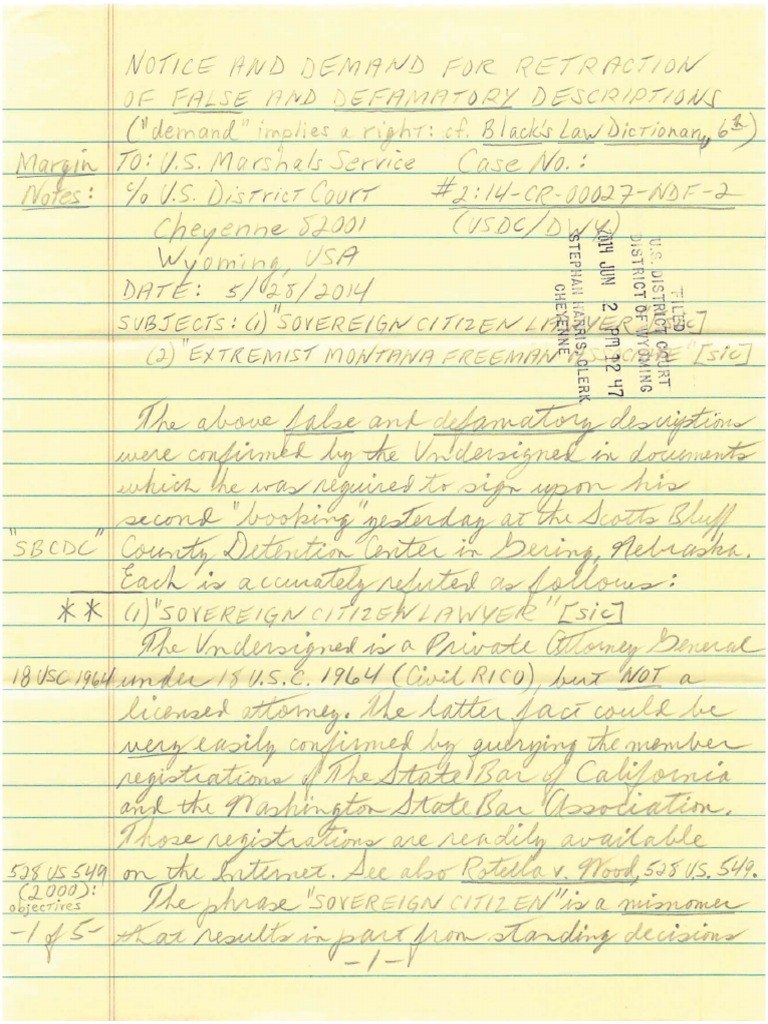 NOTICE AND DEMAND FOR RETRACTION
OF FALSE AND DEFAMATORY DESCRIPTIONS
("demand" implies a right: cf. Black's Law Dictionary, 6th)
Margin TO: U.S. Marshals Service Case No.:
Notes: c/o U.S. District Court #2:14-CR-00027-NDF-2
Cheyenne 82001 (USDC/DWY)
Wyoming, USA
DATE: 5/28/2014
FILED
U.S. DISTRICT COURT
DISTRICT OF WYOMING
2014 JUN 2 PM 12 47
STEPHAN HARRIS, CLERK
CHEYENNE
SUBJECTS: (1) "SOVEREIGN CITIZEN LAWYER" [sic]
(2) "EXTREMIST MONTANA FREEMAN ASSOCIATE" [sic]
The above false and defamatory descriptions
were confirmed by the Undersigned in documents
which he was required to sign upon his
second "booking" yesterday at the Scotts Bluff
"SBCDC" County Detention Center in Gering, Nebraska.
Each is accurately refuted as follows:
** (1) "SOVEREIGN CITIZEN LAWYER" [sic]
The Undersigned is a Private Attorney General
18 USC 1964 under 18 U.S.C. 1964 (Civil RICO), but NOT a
licensed attorney. The latter fact could be
very easily confirmed by querying the member
registrations of The State Bar of California
and the Washington State Bar Association.
Those registrations are readily available
528 US 549 on the Internet. See also Rotella v. Wood, 528 US. 549.
(2000):
objectives The phrase "SOVEREIGN CITIZEN" is a misnomer
-1 of 5- that results in part from standing decisions
-1-